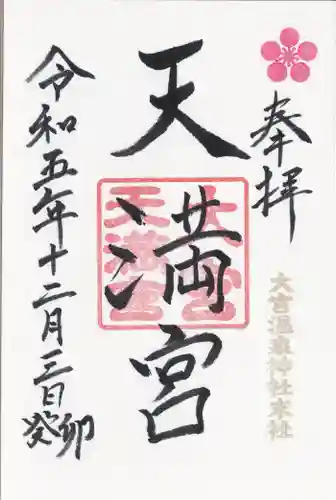 奉拝
大宮温泉神社末社
天満宮
天満宮
令和五年十二月三日癸卯